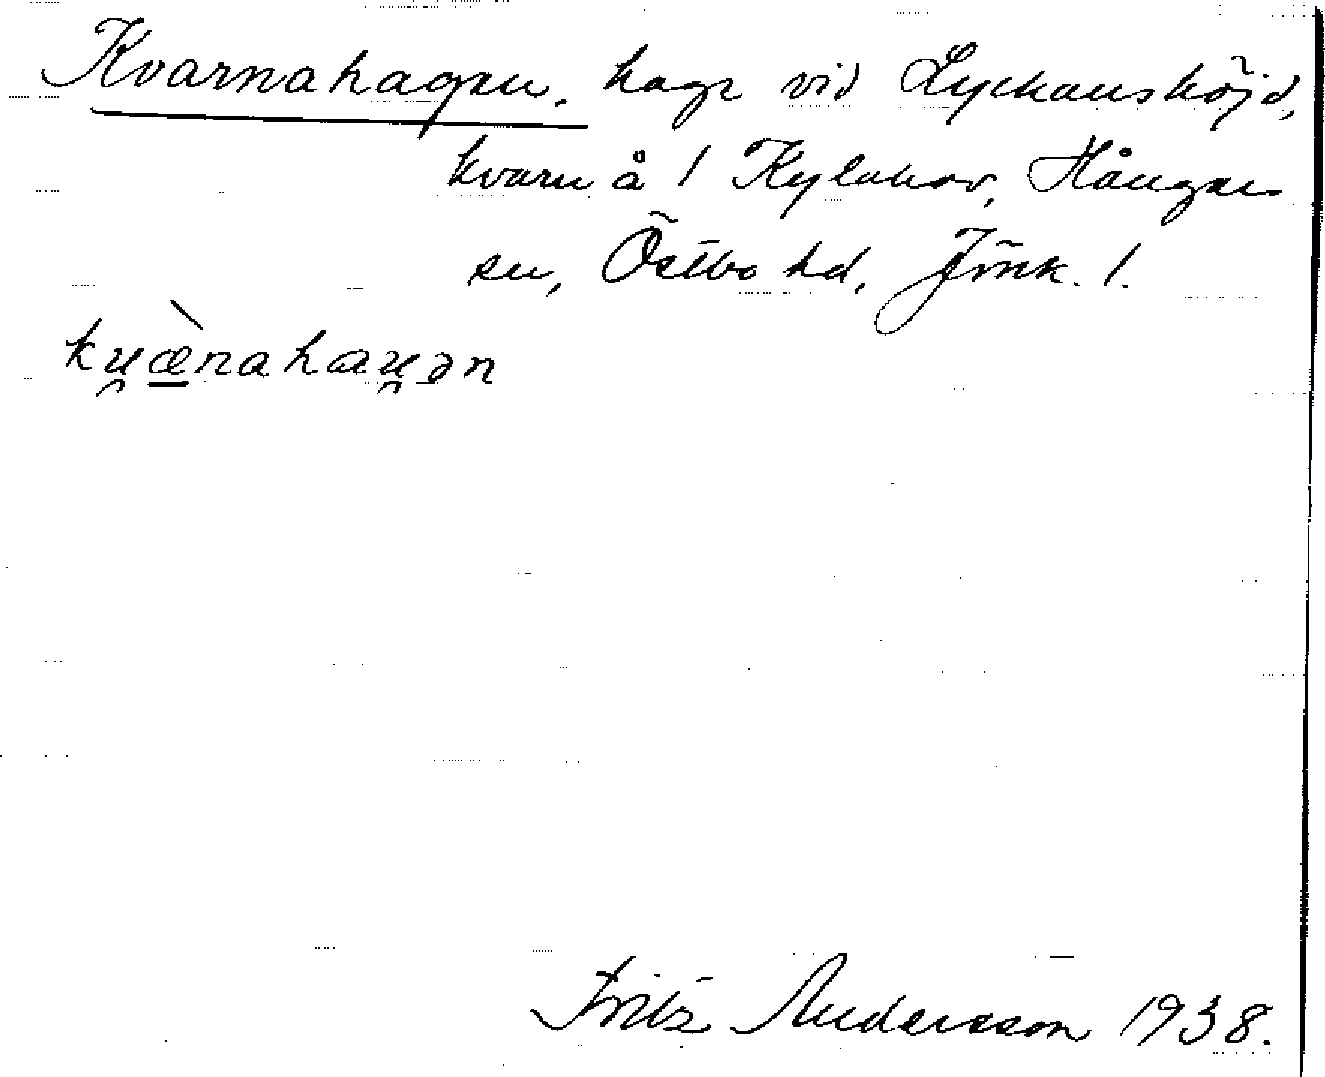 Kvarnahagen, hage vid Lyckanshöjd,
kvarn å 1 Kylahov, Hånger
sn, Östbo hd, Jönk. l.
kṷæ̀nahaṷən
Fritz Andersson 1938.